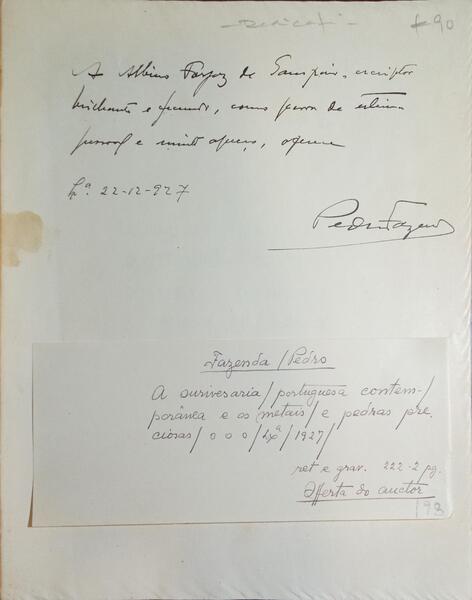 90
A Albino Forjaz de Sampaio, escriptor
brilhante e fecundo, como prova de estima
pessoal e muito apreço, oferece
Lx.ª 22-12-927
Pedro Fazenda
Fazenda / Pedro
A ouriversaria / portuguesa contem- /
porânea e os metais / e pedras pre-
ciosas / o o o / Lxª / 1927 /
ret e grav. 222-2 pg.
Offerta do auctor
193